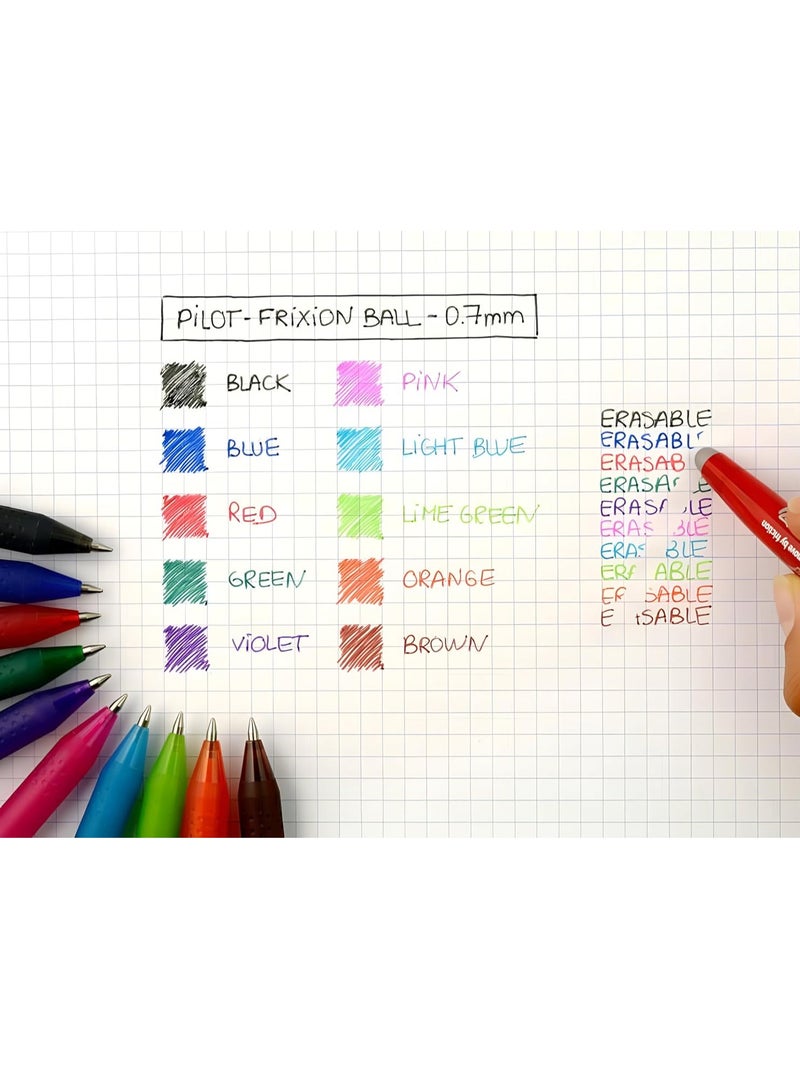 PiLOT-FRiXiON BALL-0.7mm
BLACK
BLUE
RED
GREEN
ViOLET
PiNK
LiGHT BLUE
LiME GREEN
ORANGE
BROWN
ERASABLE
ERASABL
ERASAB
ERASA E
ERASA LE
ERAS BLE
ERAS BLE
ERA ABLE
ER SABLE
E SABLE
move by friction